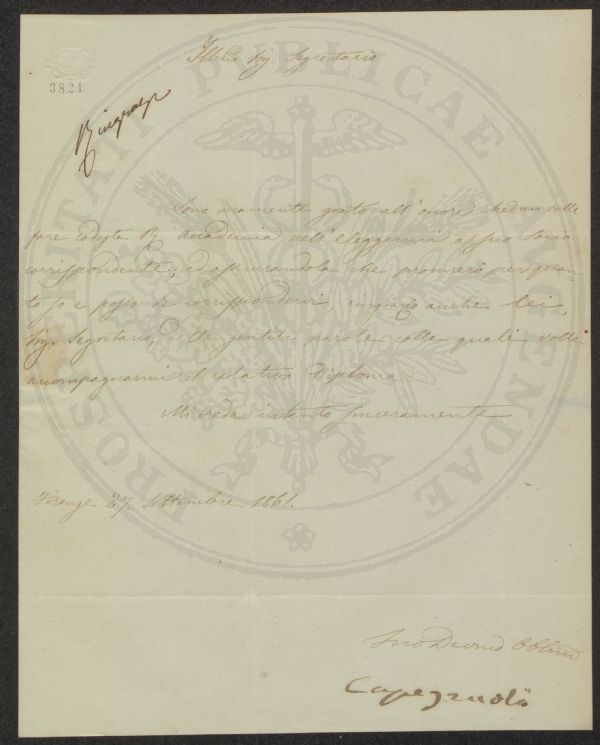 3821
Illmo Sig. Segretario
Ringrazia
Sono oramente grato all'onore che mi volle
fare codesta R. Accademia nell'eleggermi a suo socio
corrispondente, ed assicurandola che procurerò per quan-
to so e posso di corrispondervi, ringrazio anche lei,
Sig. Segretario, delle gentili parole colle quali volle
accompagnarmi il relativo Diploma.
Mi creda intanto sinceramente
Firenze 27. Settembre 1861.
Suo Devmo Obblmo
PROSPERITATI PVBLICAE AVGENDAE